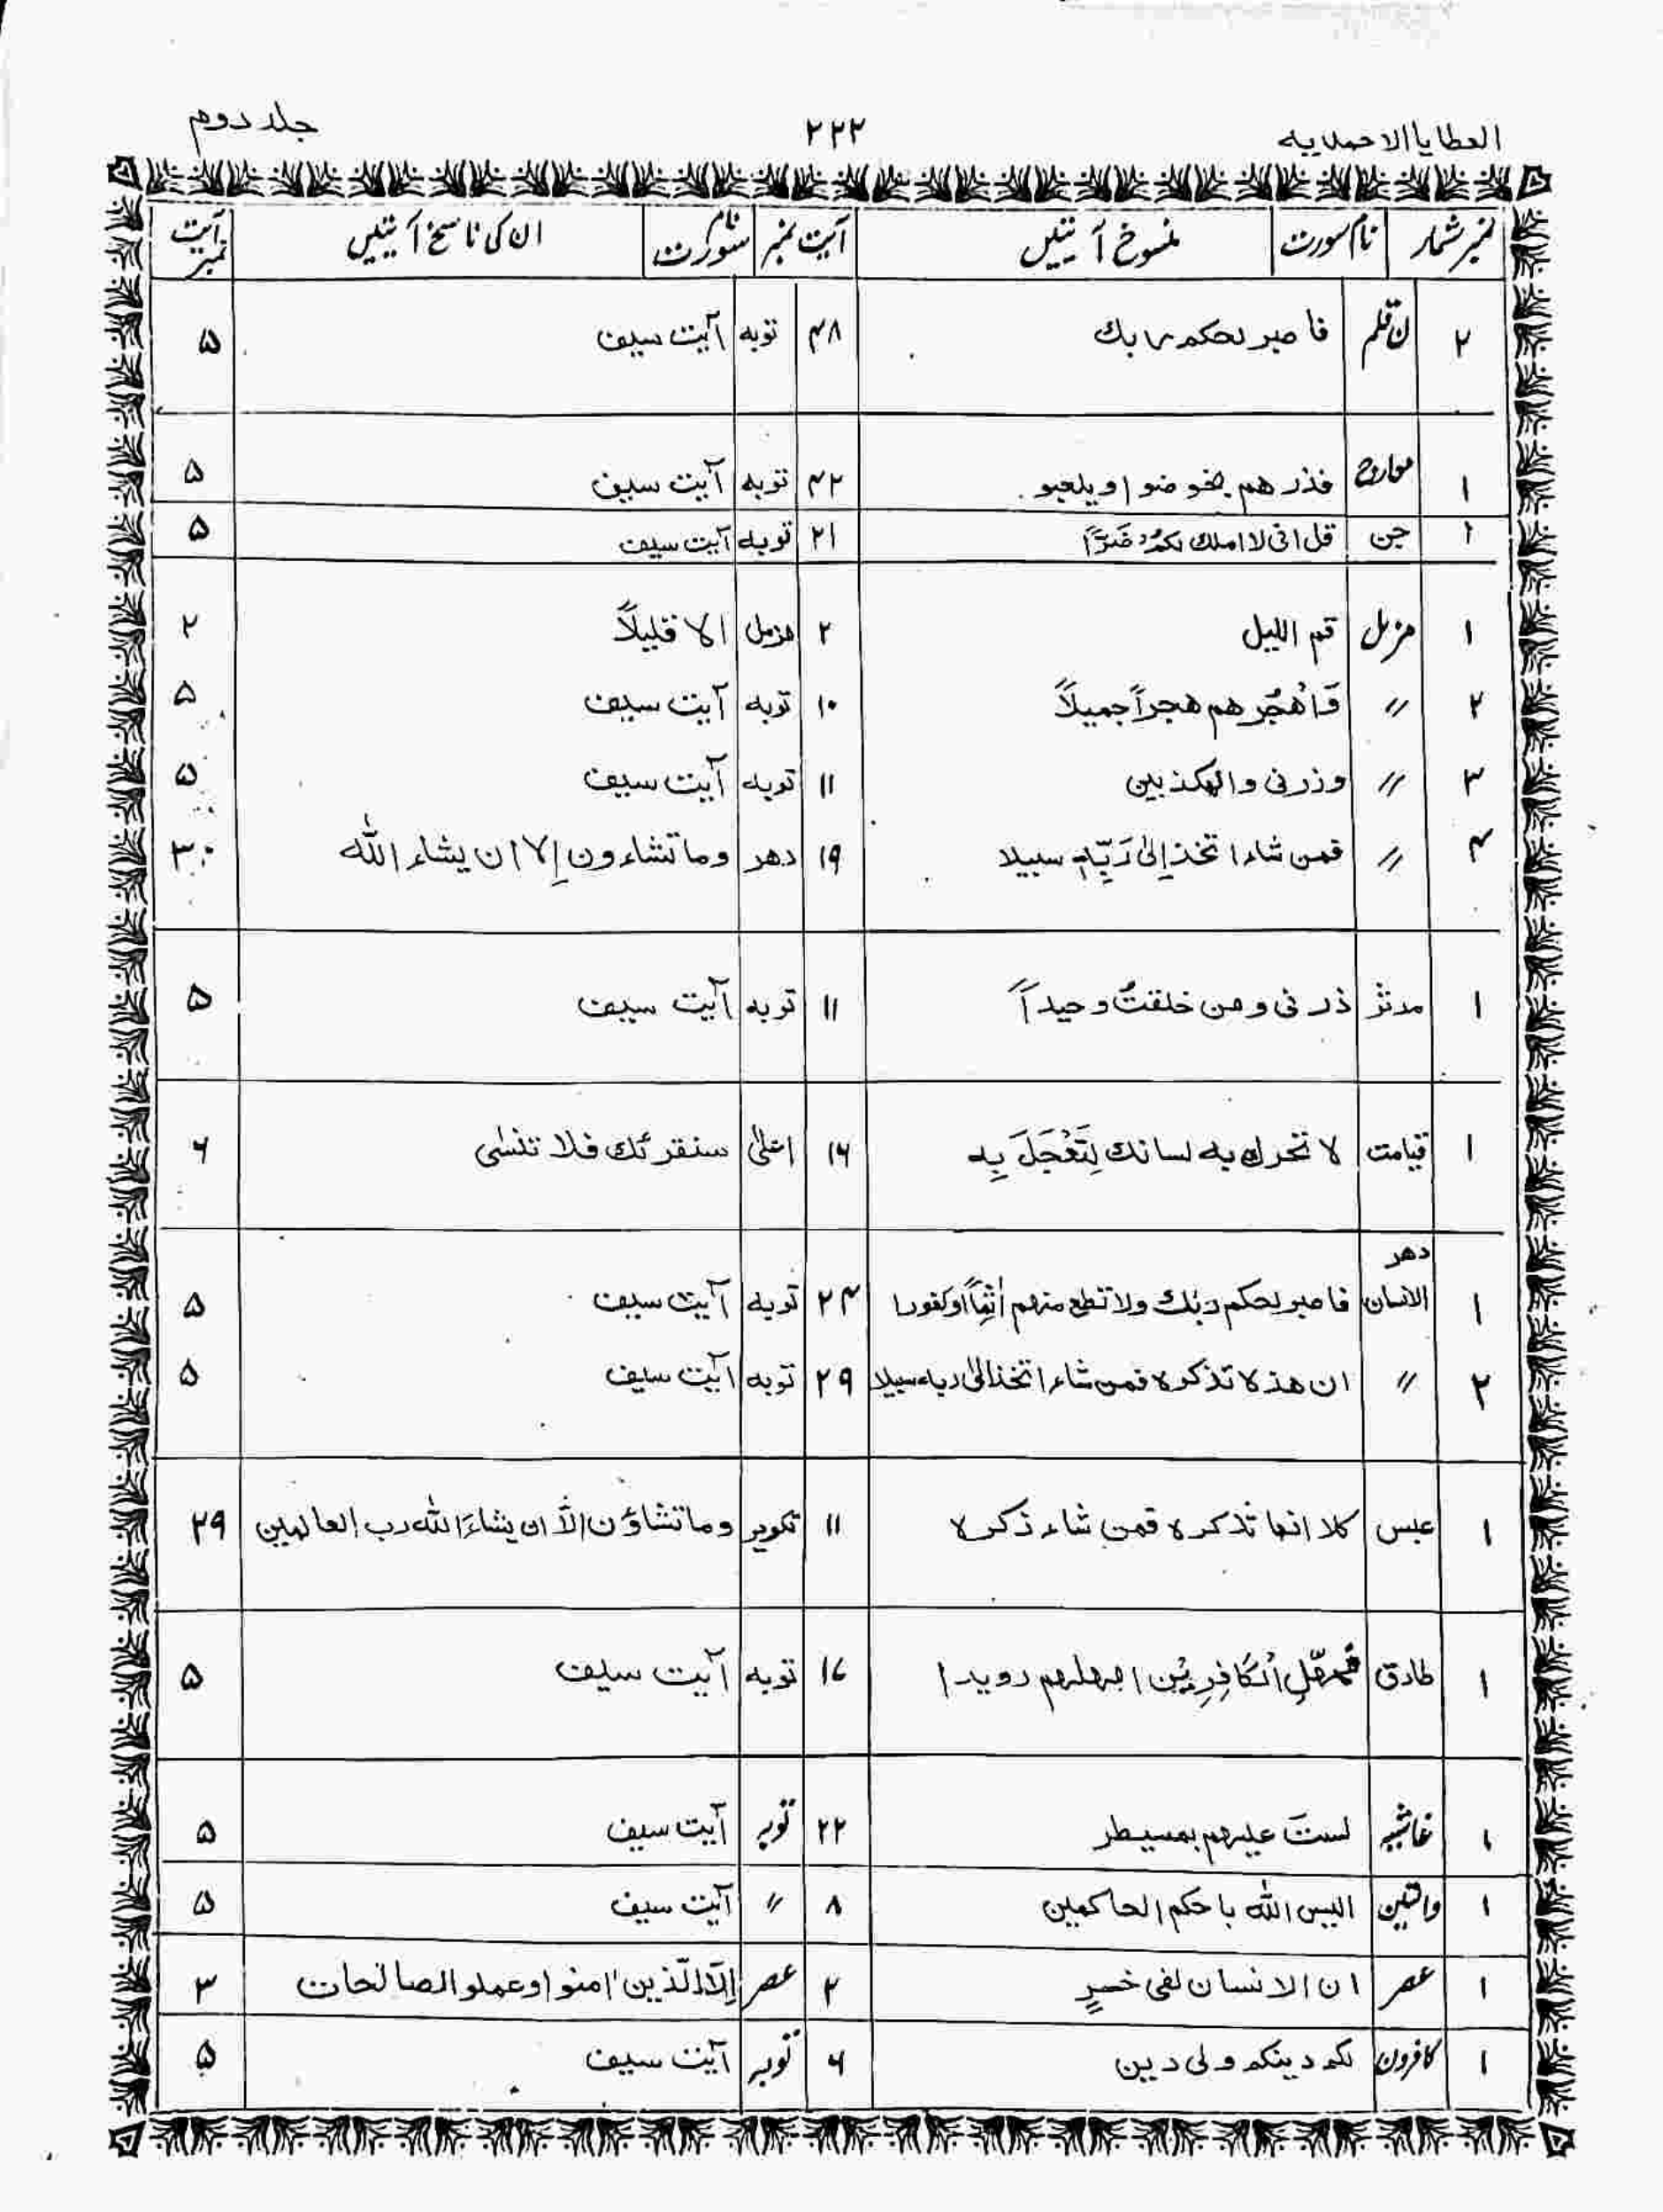 العطایا الاحمدیہ ۲۲۲ جلد دوم
نمبر شمار نام سورت منسوخ آیتیں آیت نمبر نام سورت ان کی ناسخ آیتیں آیت نمبر
۲ ن قلم فاصبر لحکم ربك ۴۸ توبه آیت سیف ۵
۱ معارج فذرهم یخوضوا ویلعبو ۴۲ توبه آیت سیف ۵
۱ جن قل انی لا املك لکم ضَرّاً ۲۱ توبه آیت سیف ۵
۱ مزمل قم اللیل ۲ مزمل الا قلیلاً ۲
۲ // وَاهْجُرهم هجراً جمیلاً ۱۰ توبه آیت سیف ۵
۳ // وذرنی والمکذبین ۱۱ توبه آیت سیف ۵
۴ // فمن شاء اتخذ إلیٰ رَبِّهٖ سبیلا ۱۹ دهر وما تشاءون إلا ان یشاء اللّٰه ۳۰
۱ مدثر ذرنی ومن خلقتُ وحیداً ۱۱ توبه آیت سیف ۵
۱ قیامت لا تحرك به لسانك لِتَعْجَلَ بِه ۱۶ اعلیٰ سنقرئك فلا تنسٰی ۶
دهر
۱ الانسان فاصبر لحکم ربّك ولا تطع منهم اٰثِماً اوکفورا ۲۴ توبه آیت سیف ۵
۲ // ان هذہ تذکرہ فمن شاء اتخذ الیٰ ربه سبیلا ۲۹ توبه آیت سیف ۵
۱ عبس کلا انها تذکرہ فمن شاء ذکرہ ۱۱ تکویر وما تشاؤن الّا ان یشاءَ اللّٰه رب العالمین ۲۹
۱ طارق فَمَهِّلِ الْکَافِرِیْن امهلهم رویدا ۱۷ توبه آیت سیف ۵
۱ غاشیہ لستَ علیهم بمسیطر ۲۲ توبہ آیت سیف ۵
۱ والتین الیس اللّٰه باحکم الحاکمین ۸ // آیت سیف ۵
۱ عصر ان الانسان لفی خسرٍ ۲ عصر اِلّا الّذین اٰمنوا وعملو الصالحات ۳
۱ کافرون لکم دینکم ولی دین ۶ توبہ آیت سیف ۵